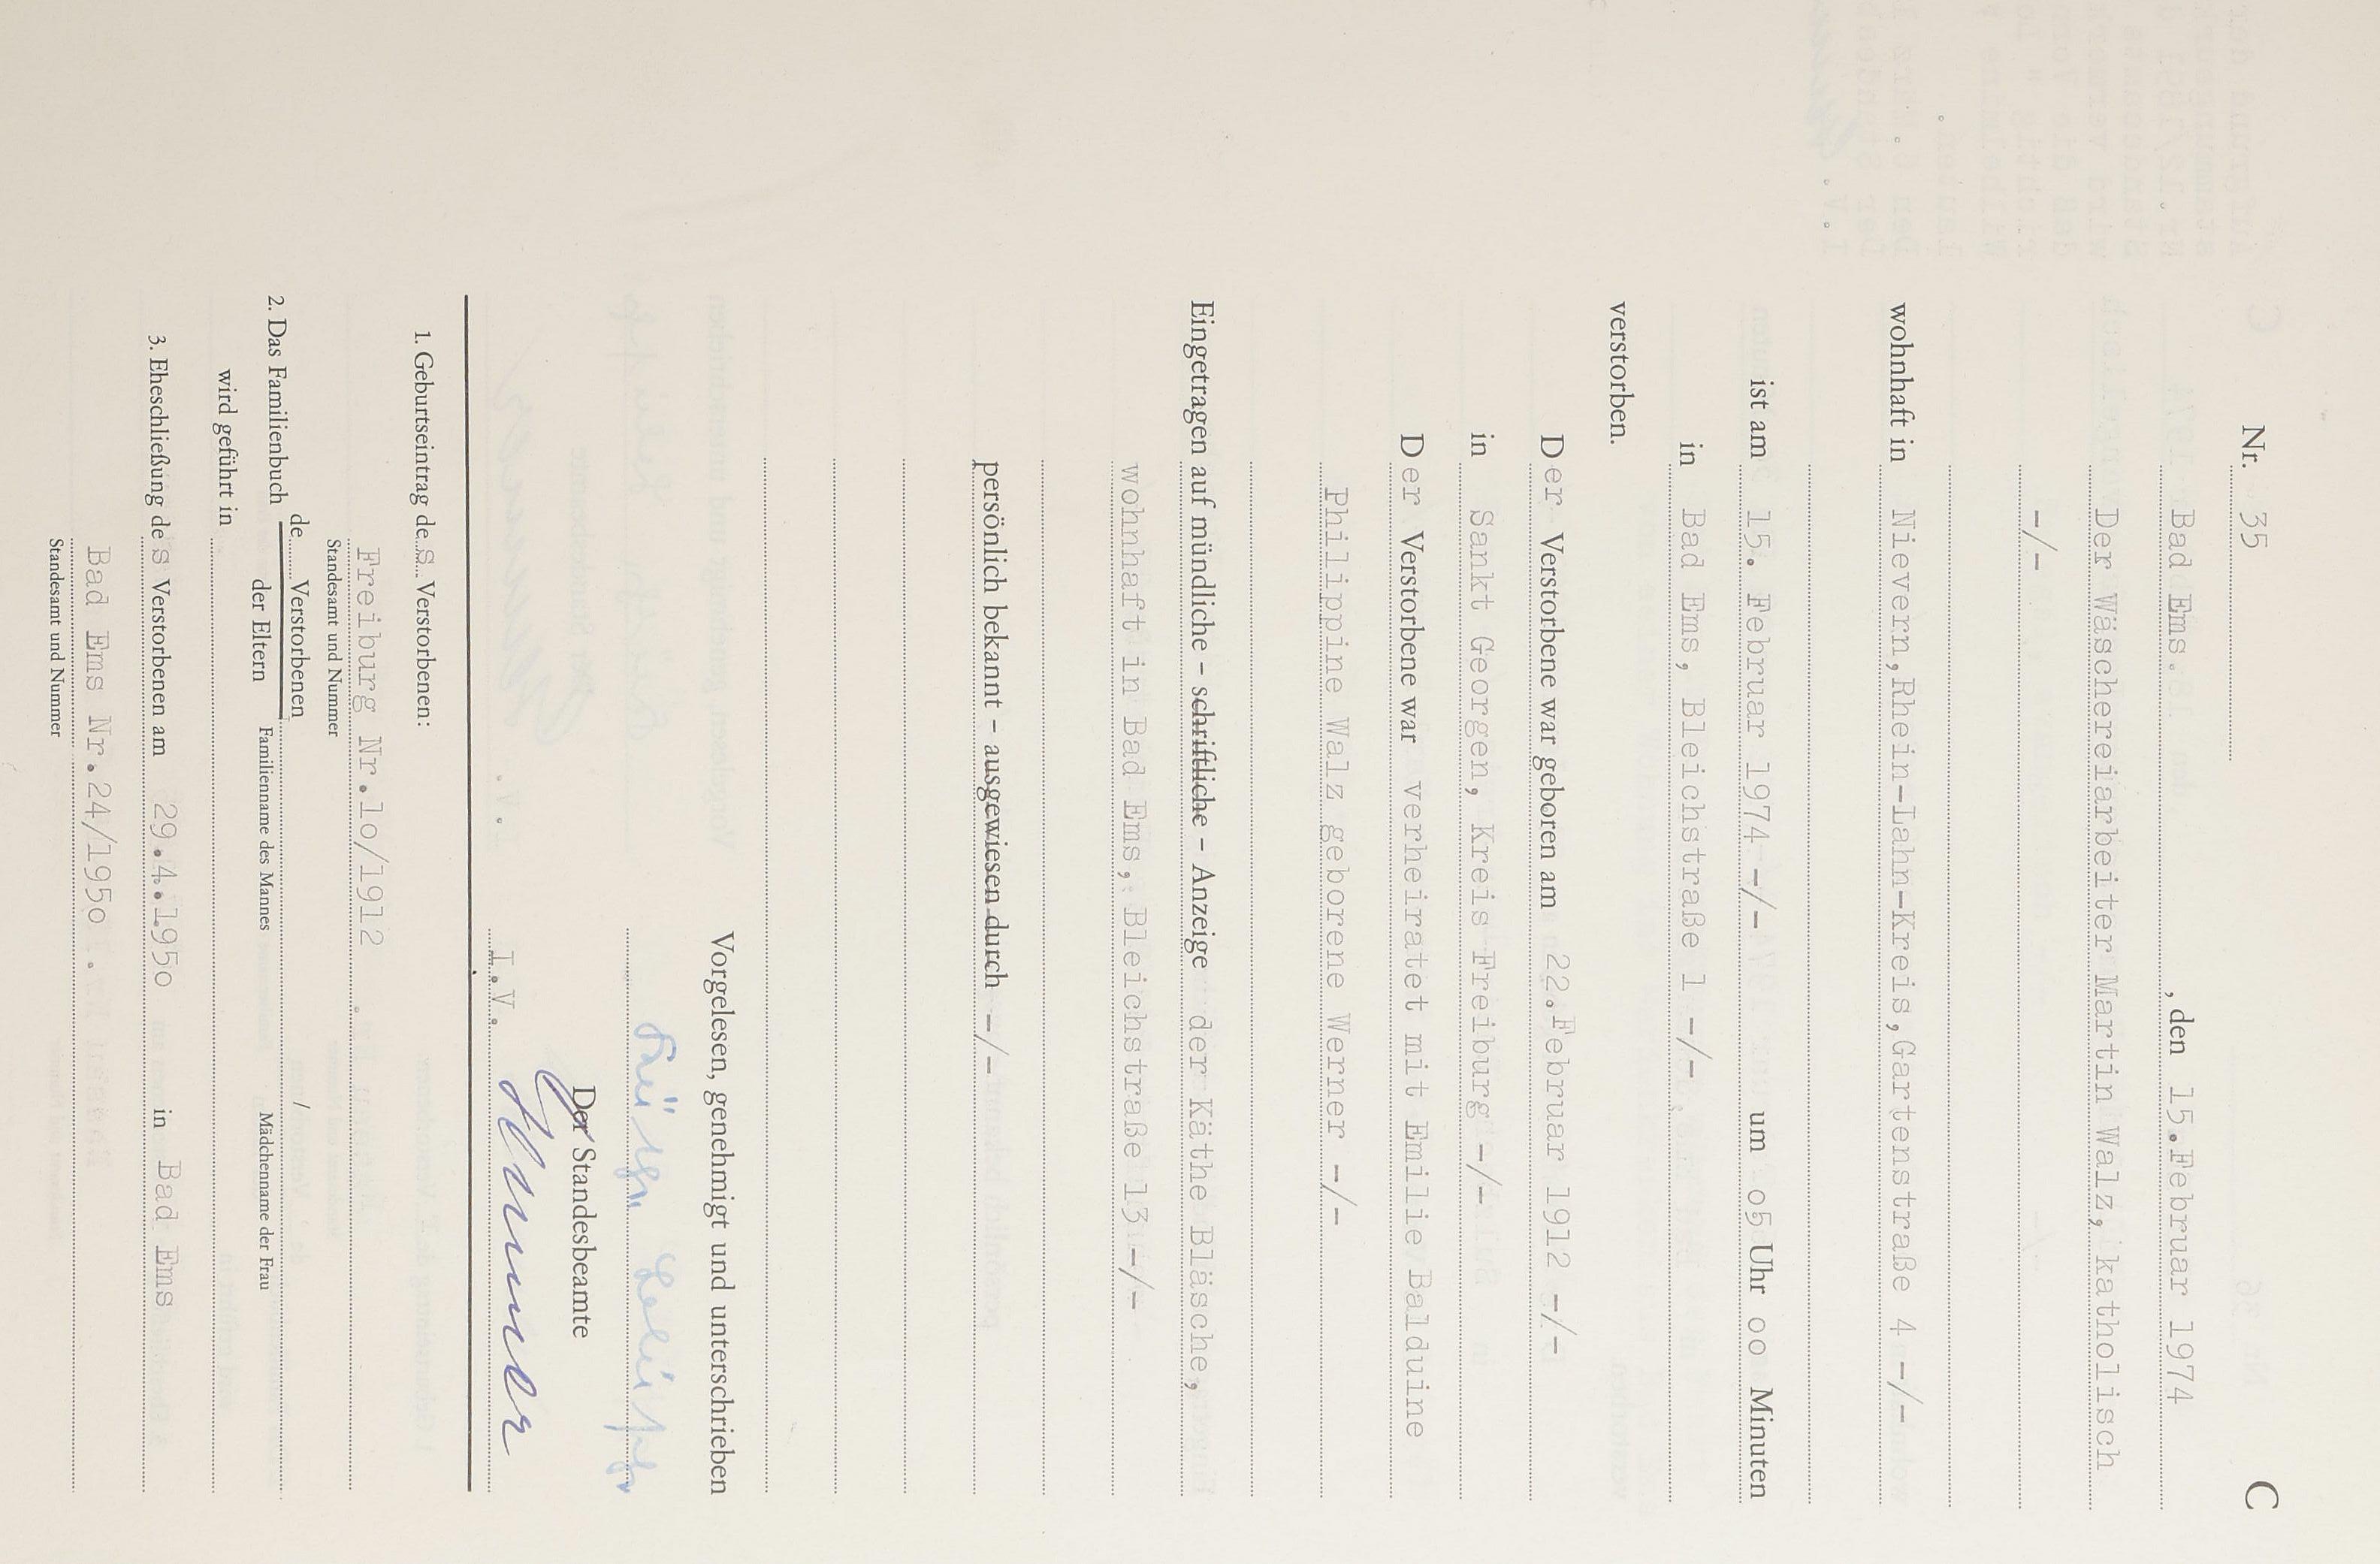 C
Nr. 35
Bad Ems, den 15.Februar 1974
Der Wäschereiarbeiter Martin Walz, katholisch
-/-
wohnhaft in Nievern,Rhein-Lahn-Kreis,Gartenstraße 4 -/-
ist am 15. Februar 1974 -/- um o5 Uhr oo Minuten
in Bad Ems, Bleichstraße 1 -/-
verstorben.
Der Verstorbene war geboren am 22.Februar 1912 -/-
in Sankt Georgen, Kreis Freiburg -/-
Der Verstorbene war verheiratet mit Emilie Balduine
Philippine Walz geborene Werner -/-
Eingetragen auf mündliche – schriftliche – Anzeige der Käthe Bläsche,
wohnhaft in Bad Ems, Bleichstraße 13 -/-
persönlich bekannt – ausgewiesen durch -/-
Vorgelesen, genehmigt und unterschrieben
Der Standesbeamte
I.V.
1. Geburtseintrag des Verstorbenen:
Freiburg Nr.1o/1912
Standesamt und Nummer
de Verstorbenen
2. Das Familienbuch
der Eltern Familienname des Mannes / Mädchenname der Frau
wird geführt in
3. Eheschließung des Verstorbenen am 29.4.195o in Bad Ems
Bad Ems Nr.24/195o
Standesamt und Nummer